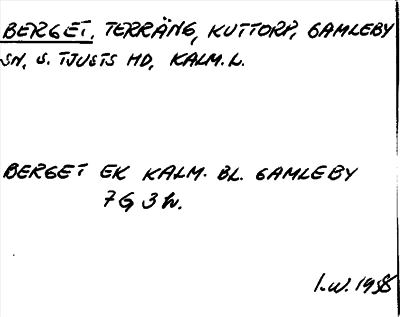 BERGET, TERRÄNG, KUTTORP, GAMLEBY
SN, S. TJUSTS HD, KALM. L.
BERGET EK KALM. BL. GAMLEBY
7G 3h.
I.W. 19